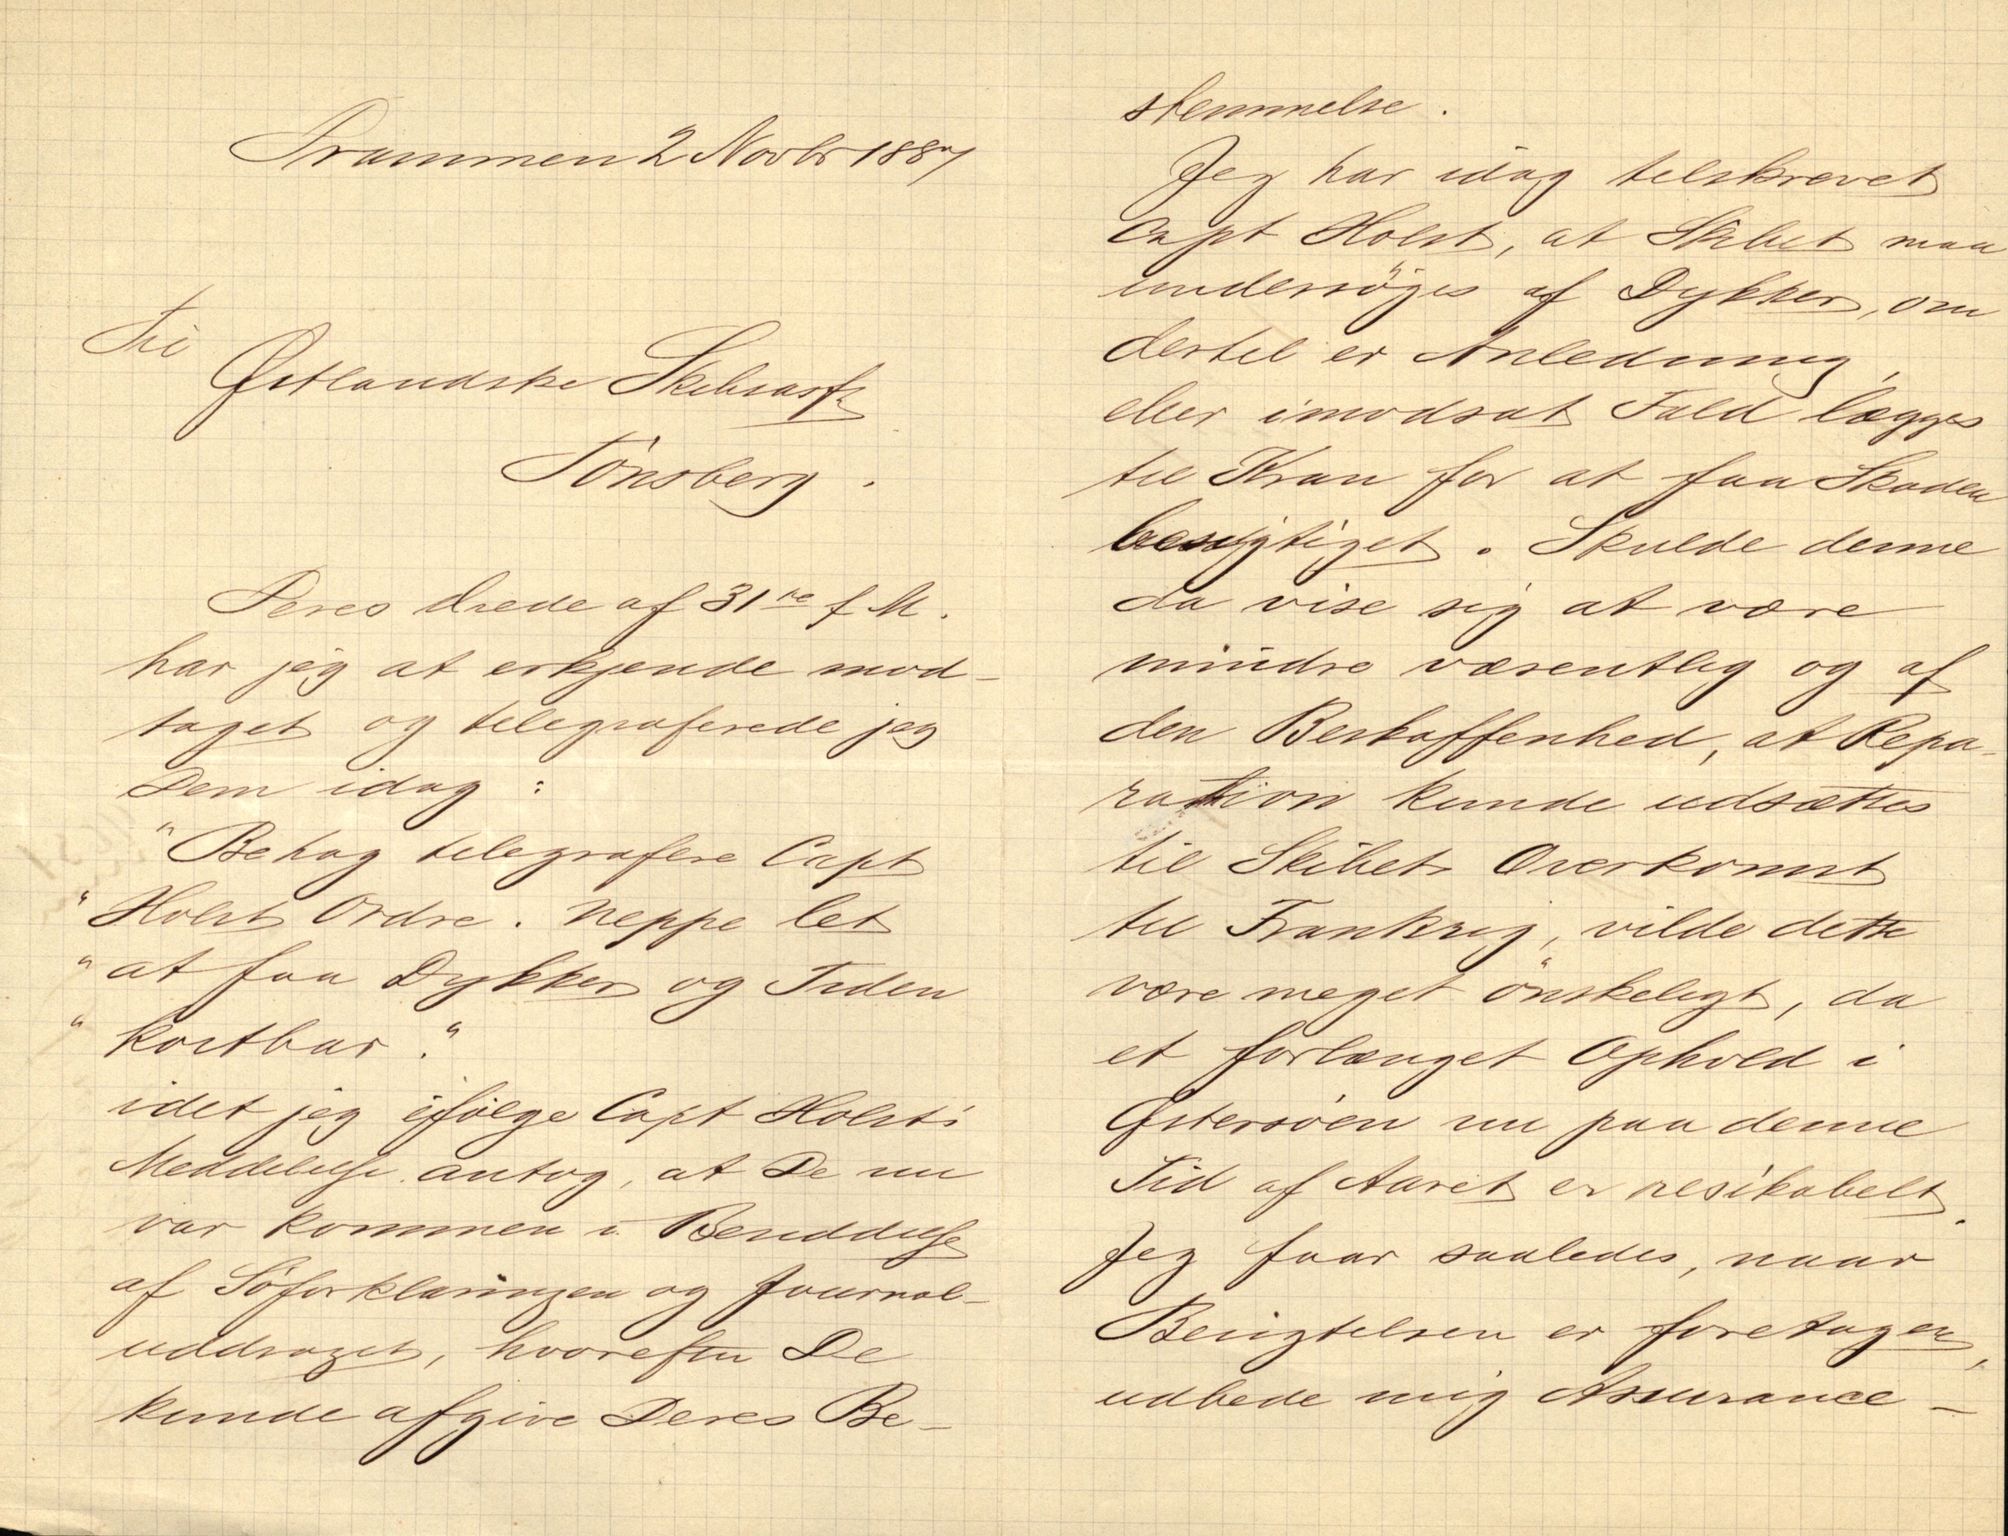 Drammen 2 Novbr 1887
Til
Østlandske Skibsassf.
Tönsberg.
Deres ærede af 31te f M.
har jeg at erkjende mod-
taget og telegraferede jeg
Dem idag:
"Behag telegrafere Capt
"Holst Ordre. Neppe let
"at faa Dykker og Tiden
"kostbar."
idet jeg ifølge Capt Holst's
Meddelelse antog, at De nu
var kommen i Besiddelse
af Söforklaringen og Journal-
uddraget, hvorefter De
kunde afgive Deres Be-
stemmelse.
Jeg har idag tilskrevet
Capt Holst, at Skibet maa
undersöges af Dykker, om
dertil er Anledning,
eller imodsat Fald lægges
til Kran for at faa Skaden
besigtiget. Skulde denne
da vise sig at være
mindre væsentlig og af
den Beskaffenhed, at Repa-
ration kunde udsættes
til Skibets Overkomst
til Frankrig, vilde dette
være meget önskeligt, da
et forlænget Ophold i
Østersöen nu paa denne
Tid af Aaret er resikabelt.
Jeg faar saaledes, naar
Besigtelsen er foretagen,
udbede mig Assurance-